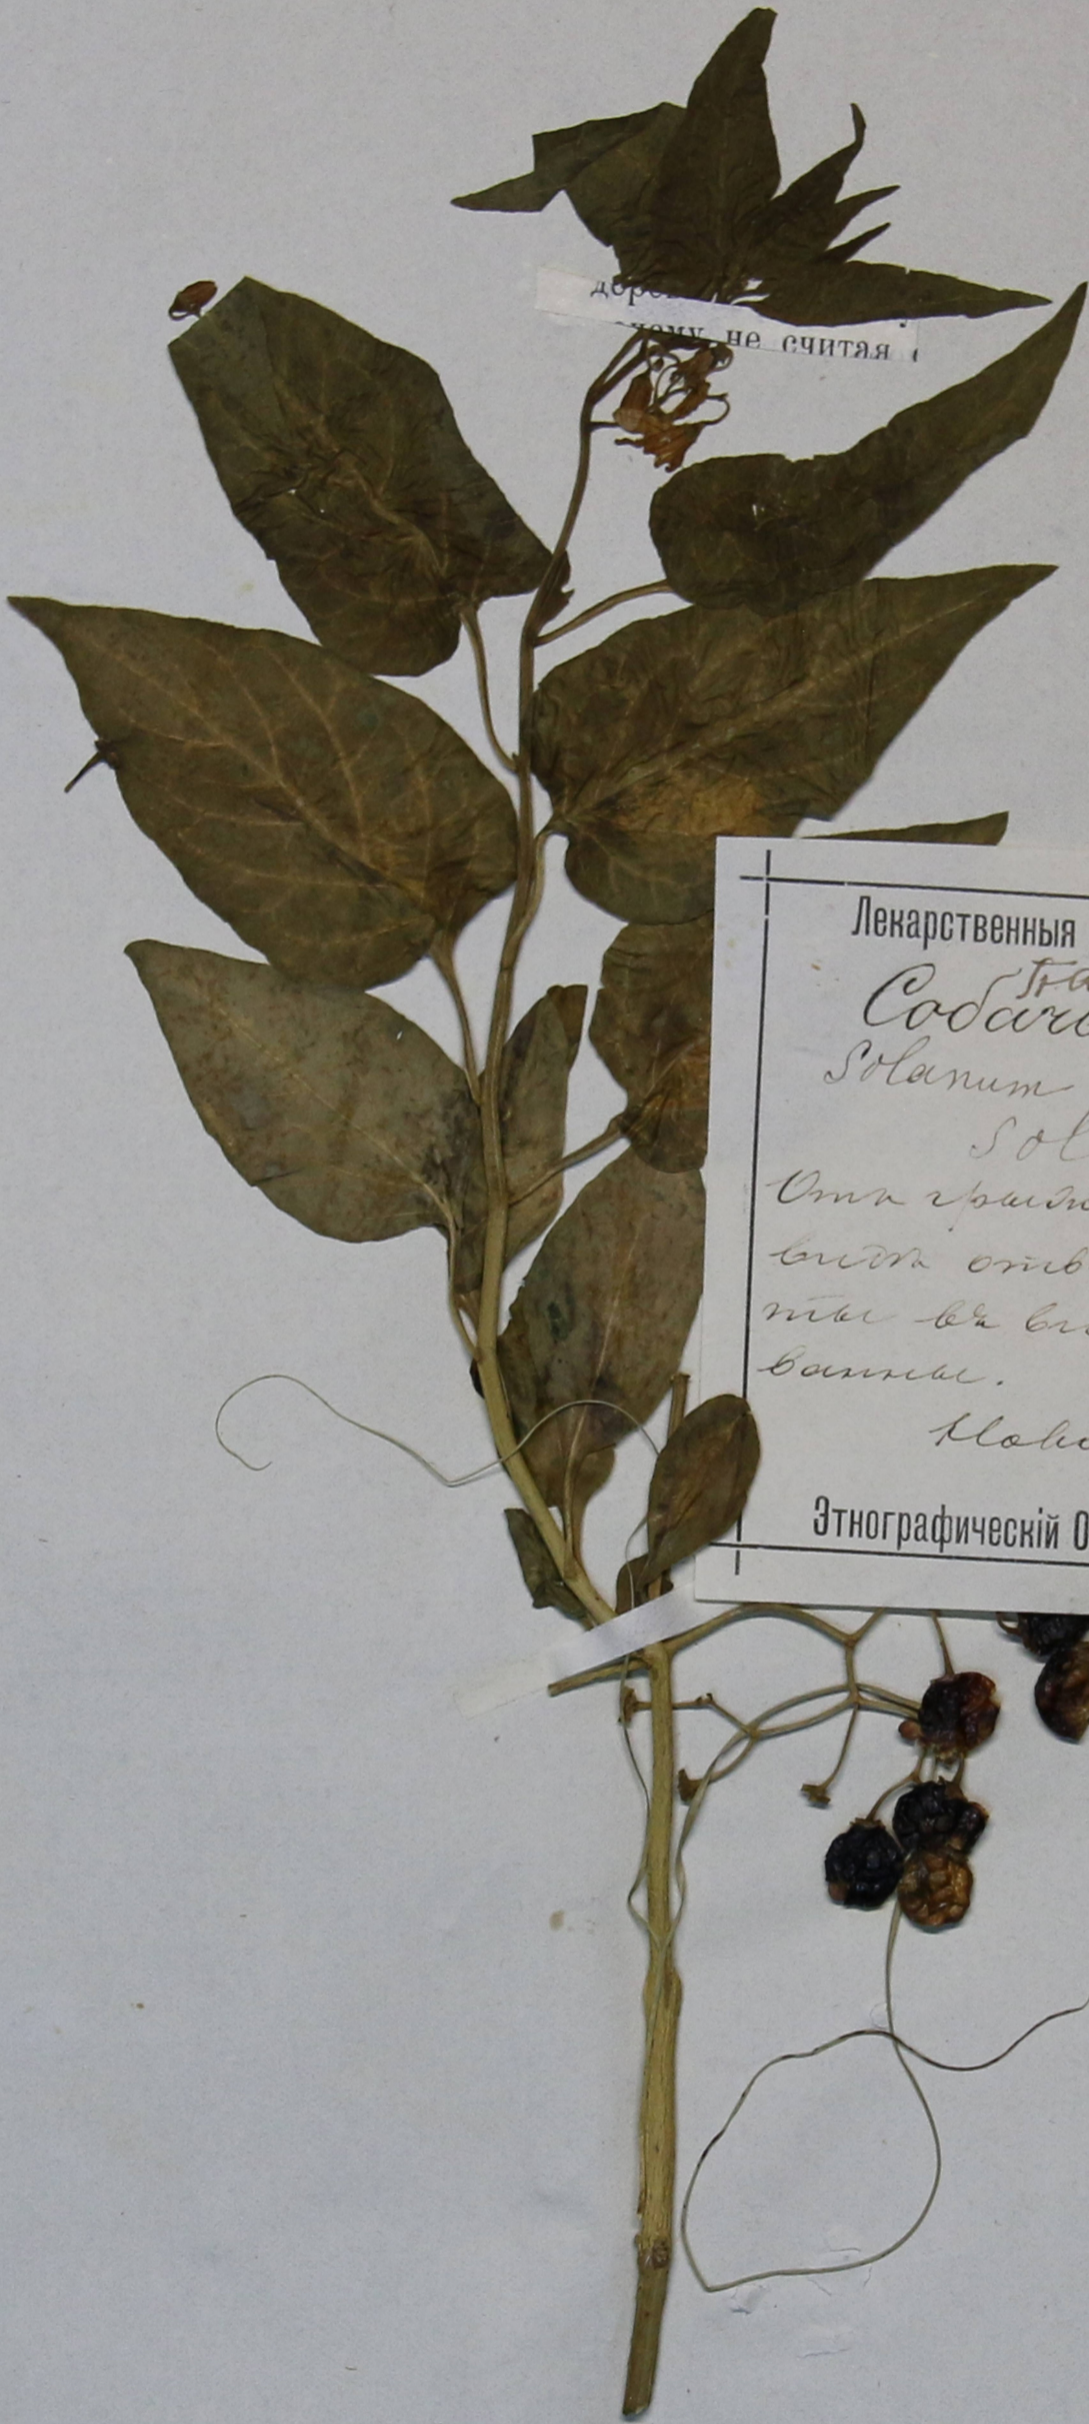 не считая
Лекарственныя
Собачь
Solanum
Sol
Отъ грыж
видѣ отв
ты въ ви
ванны.
Этнографическій О